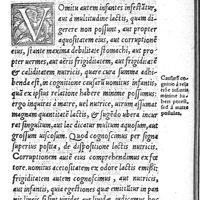 VOmitu autem infantes infestãtur,
aut à multitudine lactis, quam di-
gerere non possunt, aut propter
aquositatem eius, aut corruptionẽ
eius, stante maxima debilitate stomachi, aut pro-
pter vermes, aut aëris frigiditatem, aut frigiditatẽ
& caliditatem nutricis, quare cura summa adhi-
benda est, in cognitione causarum infantis romitiõis
quia ex ipsius relatione habere minime possumus:
ergo inquiras à matre, vel nutrice, utrum assumat
magnam quantitatẽ lactis, & sugẽdo ubera incur
rat singultum, aut lac dicatur multum aquosum, aut
grossum viscosum. Quod cognoscimus per signa
superius posita, de dispositione lactis nutricis,
Corruptionem autẽ eius comprehendimus ex fœ
tore. nomitus acetositatem ex odore lactis emissi:
frigiditatem autem cognoscimus, aut nutricis,
aut infantis, quia egestiones quæ emittuntur in pan
Causarũ co-
gnitio à rela-
tiõe infantis
minime ha-
beri potest,
sed à matre